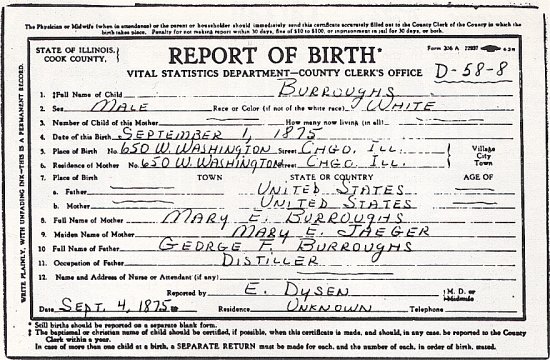 The Physician or Midwife (when in attendance) or the parent or householder should immediately send this certificate accurately filled out to the County Clerk of the County in which the
birth takes place. Penalty for not making report within 30 days, fine of $10 to $100, or imprisonment in jail for 30 days, or both.
STATE OF ILLINOIS,
COOK COUNTY,
REPORT OF BIRTH*
Form 206 A 22897
VITAL STATISTICS DEPARTMENT—COUNTY CLERK'S OFFICE
D-58-8
1. ‡Full Name of Child BURROUGHS
2. Sex MALE Race or Color (if not of the white race) WHITE
3. Number of Child of this Mother How many now living (in all)
4. Date of this Birth SEPTEMBER 1, 1875
5. Place of Birth No. 650 W. WASHINGTON Street CHGO. ILL.
6. Residence of Mother No. 650 W. WASHINGTON Street CHGO. ILL.
Village
City
Town
7. Place of Birth TOWN STATE OR COUNTRY AGE OF
a. Father UNITED STATES
b. Mother UNITED STATES
8. Full Name of Mother MARY E. BURROUGHS
9. Maiden Name of Mother MARY E. JAEGER
10. Full Name of Father GEORGE F. BURROUGHS
11. Occupation of Father DISTILLER
12. Name and Address of Nurse or Attendant (if any)
Reported by E. DYSEN M. D. or Midwife
Date SEPT. 4, 1875 Residence UNKNOWN Telephone
* Still births should be reported on a separate blank form.
‡ The baptismal or christian name of child should be certified, if possible, when this certificate is made, and should, in any case, be reported to the County
Clerk within a year.
In case of more than one child at a birth, a SEPARATE RETURN must be made for each, and the number of each, in order of birth, stated.
WRITE PLAINLY, WITH UNFADING INK—THIS IS A PERMANENT RECORD.